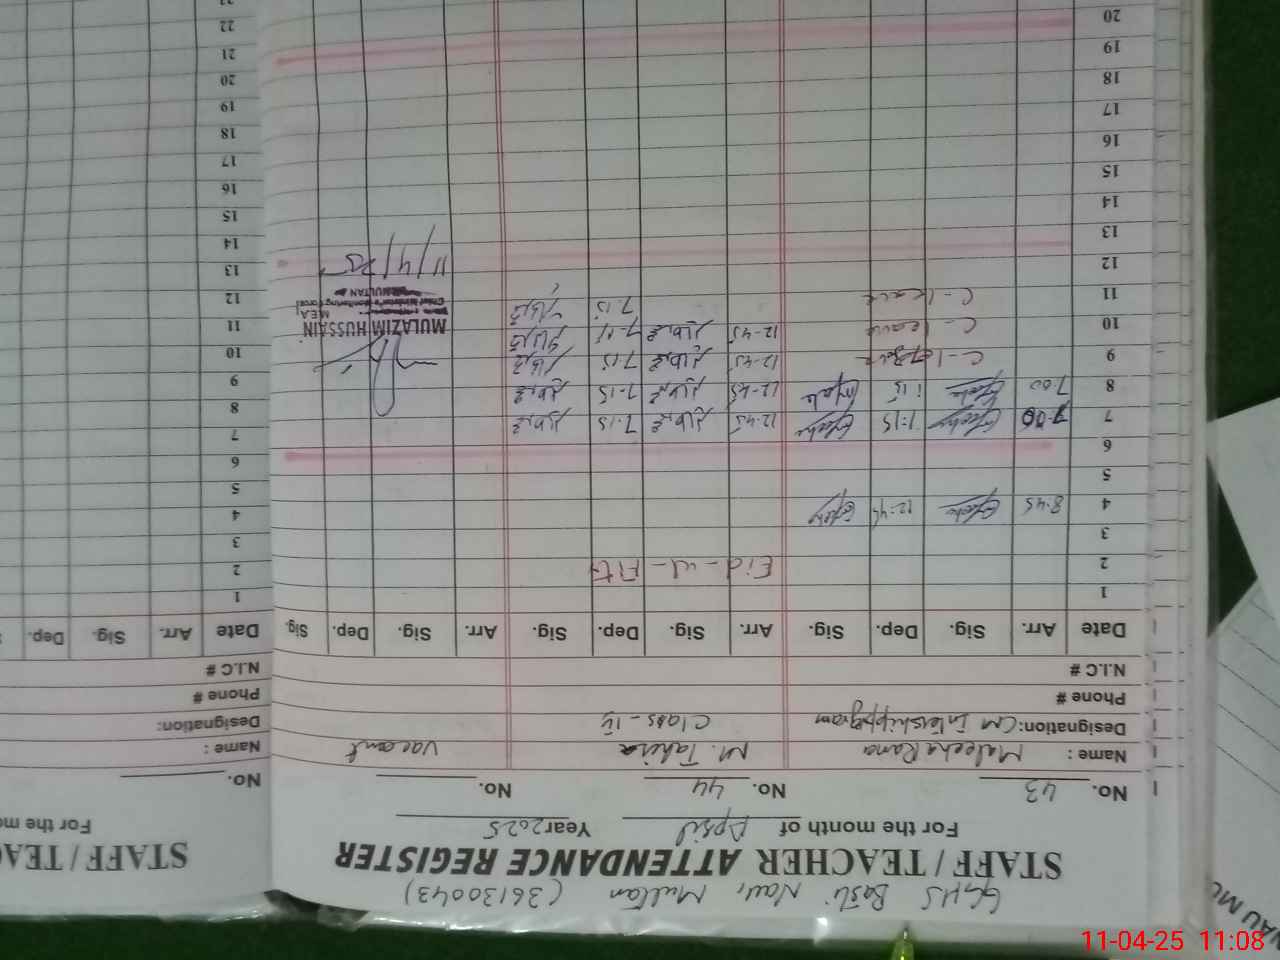 GGHS Basti Nau, Multan (36130043)
STAFF / TEACHER ATTENDANCE REGISTER
For the month of April Year 2025
No. 43 No. 44 No.
Name : Maleeha Rana M. Tahira Vacant
Designation: CM Internship program Class-IV
Phone #
N.I.C #
Date Arr. Sig. Dep. Sig. Arr. Sig. Dep. Sig. Arr. Sig. Dep. Sig.
1
2 Eid-ul-Fitr
3
4 8:45 12:45
5
6
7 7:00 1:15 12-45 7.15
8 7:00 1:15 12-45 7-15
9 C-leave 12-45 7.15
10 C-leave 12-45 7-15
11 C-leave 7.15
12
13
14
15
16
17
18
19
20
MULAZIM HUSSAIN
M.E.A
Chief Minister's Monitoring Force
MULTAN
11/4/25
STAFF / TEAC
For the mo
No.
Name :
Designation:
Phone #
N.I.C #
Date Arr. Sig. Dep.
1
2
3
4
5
6
7
8
9
10
11
12
13
14
15
16
17
18
19
20
21
22
11-04-25 11:08